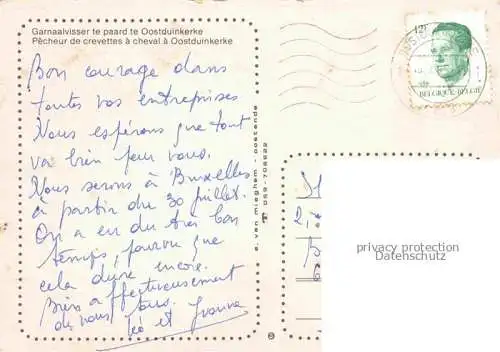 Garnaalvisser te paard te Oostduinkerke
Pêcheur de crevettes à cheval à Oostduinkerke
Bon courage dans
toutes vos entreprises
Nous espérons que tout
va bien pour vous.
Nous serons à Bruxelles
à partir du 30 juillet.
On a eu du très bon
temps, pourvu que
cela dure encore.
Bien affectueusement
de nous tous.
Léo et Yvonne
e. van mieghem oostende
059-706622
12F
BELGIQUE-BELGIË
privacy protection
Datenschutz